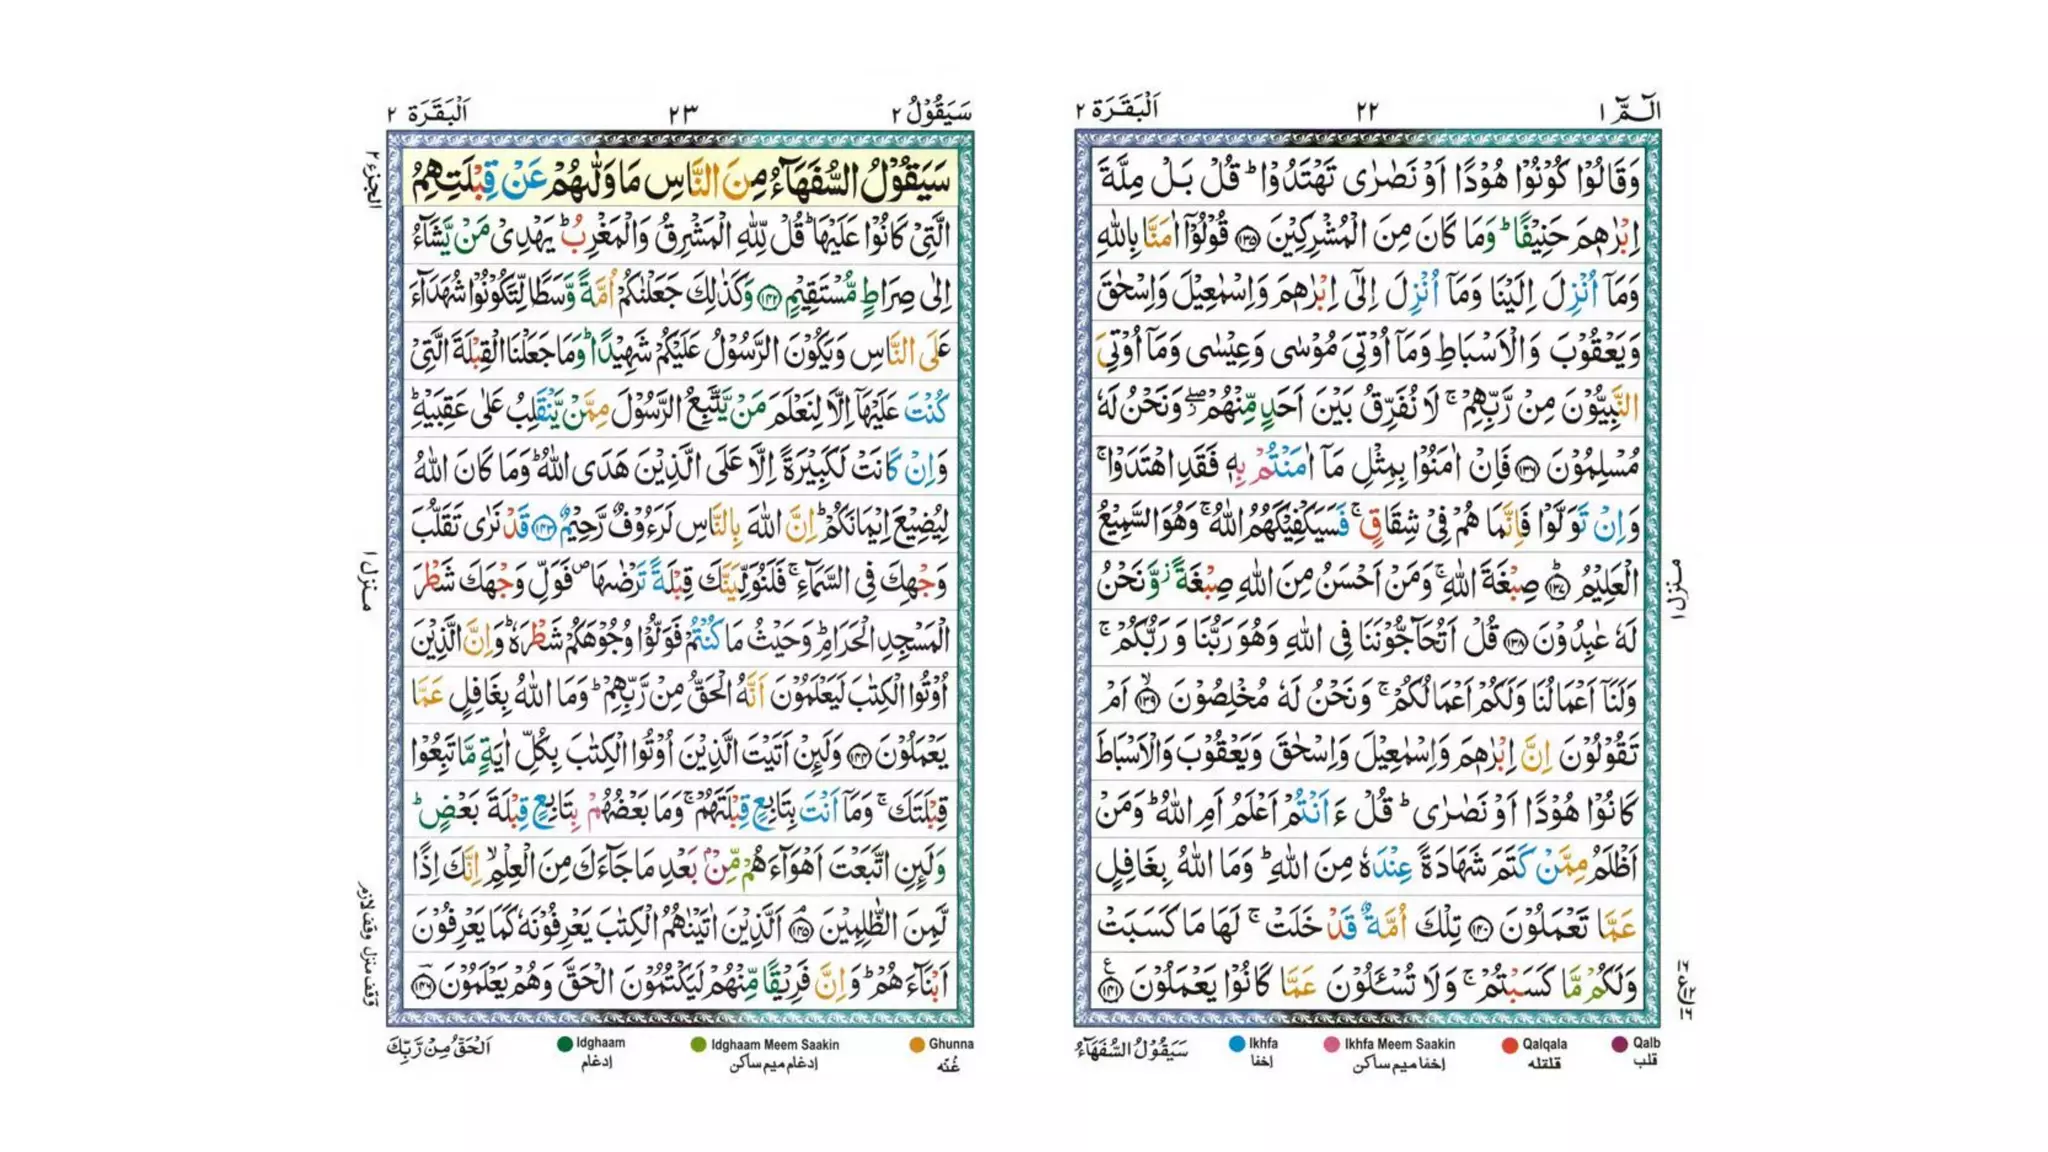 الٓمّٓ ١
٢٢
اَلْبَقَرَة ٢
وَقَالُوْا كُوْنُوْا هُوْدًا اَوْ نَصٰرٰى تَهْتَدُوْا ؕ قُلْ بَلْ مِلَّةَ
اِبْرٰهٖمَ حَنِيْفًا ؕ وَمَا كَانَ مِنَ الْمُشْرِكِيْنَ ﴿١٣٥﴾ قُوْلُوْۤا اٰمَنَّا بِاللّٰهِ
وَمَاۤ اُنْزِلَ اِلَيْنَا وَمَاۤ اُنْزِلَ اِلٰٓى اِبْرٰهٖمَ وَاِسْمٰعِيْلَ وَاِسْحٰقَ
وَيَعْقُوْبَ وَالْاَسْبَاطِ وَمَاۤ اُوْتِيَ مُوْسٰى وَعِيْسٰى وَمَاۤ اُوْتِيَ
النَّبِيُّوْنَ مِنْ رَّبِّهِمْ ۚ لَا نُفَرِّقُ بَيْنَ اَحَدٍ مِّنْهُمْ ۖ وَنَحْنُ لَهٗ
مُسْلِمُوْنَ ﴿١٣٦﴾ فَاِنْ اٰمَنُوْا بِمِثْلِ مَاۤ اٰمَنْتُمْ بِهٖ فَقَدِ اهْتَدَوْا ۚ
وَاِنْ تَوَلَّوْا فَاِنَّمَا هُمْ فِيْ شِقَاقٍ ۚ فَسَيَكْفِيْكَهُمُ اللّٰهُ ۚ وَهُوَ السَّمِيْعُ
الْعَلِيْمُ ﴿١٣٧﴾ ؕ صِبْغَةَ اللّٰهِ ۚ وَمَنْ اَحْسَنُ مِنَ اللّٰهِ صِبْغَةً ؗ وَّنَحْنُ
لَهٗ عٰبِدُوْنَ ﴿١٣٨﴾ قُلْ اَتُحَآجُّوْنَنَا فِى اللّٰهِ وَهُوَ رَبُّنَا وَرَبُّكُمْ ۚ
وَلَنَاۤ اَعْمَالُنَا وَلَكُمْ اَعْمَالُكُمْ ۚ وَنَحْنُ لَهٗ مُخْلِصُوْنَ ﴿١٣٩﴾ ۙ اَمْ
تَقُوْلُوْنَ اِنَّ اِبْرٰهٖمَ وَاِسْمٰعِيْلَ وَاِسْحٰقَ وَيَعْقُوْبَ وَالْاَسْبَاطَ
كَانُوْا هُوْدًا اَوْ نَصٰرٰى ؕ قُلْ ءَاَنْتُمْ اَعْلَمُ اَمِ اللّٰهُ ؕ وَمَنْ
اَظْلَمُ مِمَّنْ كَتَمَ شَهَادَةً عِنْدَهٗ مِنَ اللّٰهِ ؕ وَمَا اللّٰهُ بِغَافِلٍ
عَمَّا تَعْمَلُوْنَ ﴿١٤٠﴾ تِلْكَ اُمَّةٌ قَدْ خَلَتْ ۚ لَهَا مَا كَسَبَتْ
وَلَكُمْ مَّا كَسَبْتُمْ ۚ وَلَا تُسْـَٔلُوْنَ عَمَّا كَانُوْا يَعْمَلُوْنَ ﴿١٤١﴾ ع
منزل ١
١٦
ع ١٢
١٦
Qalb
قلب
Qalqala
قلقله
Ikhfa Meem Saakin
إخفا ميم ساكن
Ikhfa
إخفا
سَيَقُوْلُ السُّفَهَآءُ
سَيَقُوْلُ ٢
٢٣
اَلْبَقَرَة ٢
الجزء ٢
سَيَقُوْلُ السُّفَهَآءُ مِنَ النَّاسِ مَا وَلّٰىهُمْ عَنْ قِبْلَتِهِمُ
الَّتِيْ كَانُوْا عَلَيْهَا ؕ قُلْ لِّلّٰهِ الْمَشْرِقُ وَالْمَغْرِبُ ؕ يَهْدِيْ مَنْ يَّشَآءُ
اِلٰى صِرَاطٍ مُّسْتَقِيْمٍ ﴿١٤٢﴾ وَكَذٰلِكَ جَعَلْنٰكُمْ اُمَّةً وَّسَطًا لِّتَكُوْنُوْا شُهَدَآءَ
عَلَى النَّاسِ وَيَكُوْنَ الرَّسُوْلُ عَلَيْكُمْ شَهِيْدًا ؕ وَمَا جَعَلْنَا الْقِبْلَةَ الَّتِيْ
كُنْتَ عَلَيْهَاۤ اِلَّا لِنَعْلَمَ مَنْ يَّتَّبِعُ الرَّسُوْلَ مِمَّنْ يَّنْقَلِبُ عَلٰى عَقِبَيْهِ ؕ
وَاِنْ كَانَتْ لَكَبِيْرَةً اِلَّا عَلَى الَّذِيْنَ هَدَى اللّٰهُ ؕ وَمَا كَانَ اللّٰهُ
لِيُضِيْعَ اِيْمَانَكُمْ ؕ اِنَّ اللّٰهَ بِالنَّاسِ لَرَءُوْفٌ رَّحِيْمٌ ﴿١٤٣﴾ قَدْ نَرٰى تَقَلُّبَ
وَجْهِكَ فِى السَّمَآءِ ۚ فَلَنُوَلِّيَنَّكَ قِبْلَةً تَرْضٰىهَا ۪ فَوَلِّ وَجْهَكَ شَطْرَ
الْمَسْجِدِ الْحَرَامِ ؕ وَحَيْثُ مَا كُنْتُمْ فَوَلُّوْا وُجُوْهَكُمْ شَطْرَهٗ ؕ وَاِنَّ الَّذِيْنَ
اُوْتُوا الْكِتٰبَ لَيَعْلَمُوْنَ اَنَّهُ الْحَقُّ مِنْ رَّبِّهِمْ ؕ وَمَا اللّٰهُ بِغَافِلٍ عَمَّا
يَعْمَلُوْنَ ﴿١٤٤﴾ وَلَئِنْ اَتَيْتَ الَّذِيْنَ اُوْتُوا الْكِتٰبَ بِكُلِّ اٰيَةٍ مَّا تَبِعُوْا
قِبْلَتَكَ ۚ وَمَاۤ اَنْتَ بِتَابِعٍ قِبْلَتَهُمْ ۚ وَمَا بَعْضُهُمْ بِتَابِعٍ قِبْلَةَ بَعْضٍ ؕ
وَلَئِنِ اتَّبَعْتَ اَهْوَآءَهُمْ مِّنْۢ بَعْدِ مَا جَآءَكَ مِنَ الْعِلْمِ ۙ اِنَّكَ اِذًا
لَّمِنَ الظّٰلِمِيْنَ ﴿١٤٥﴾ ۘ اَلَّذِيْنَ اٰتَيْنٰهُمُ الْكِتٰبَ يَعْرِفُوْنَهٗ كَمَا يَعْرِفُوْنَ
اَبْنَآءَهُمْ ؕ وَاِنَّ فَرِيْقًا مِّنْهُمْ لَيَكْتُمُوْنَ الْحَقَّ وَهُمْ يَعْلَمُوْنَ ﴿١٤٦﴾
منزل ١
وقف منزل وقف لازم
Ghunna
غُنّه
Idghaam Meem Saakin
إدغام ميم ساكن
Idghaam
إدغام
اَلْحَقُّ مِنْ رَّبِّكَ